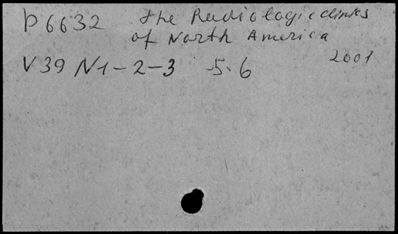 P6632 the Radiologic clinics
of North America
2001
V39 N1-2-3 5-6